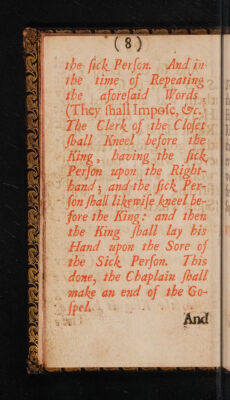 (8)
the ſick Perſon. And in
the time of Repeating
the aforeſaid Words,
(They ſhall Impoſe, &c.
The Clerk of the Cloſet
ſhall Kneel before the
King, having the ſick
Perſon upon the Right-
hand; and the ſick Per-
ſon ſhall likewiſe kneel be-
fore the King: and then
the King ſhall lay his
Hand upon the Sore of
the Sick Perſon. This
done, the Chaplain ſhall
make an end of the Go-
ſpel.
And